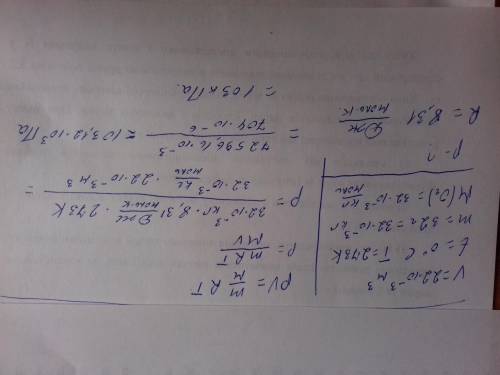 V=22·10⁻³ м³
t = 0° C T=273K
m = 32г = 32·10⁻³ кг
M(O₂) = 32·10⁻³ кг/моль
p - ?
R = 8,31 Дж/моль·K
pV = m/M RT
p = mRT/MV
p = 32·10⁻³ кг · 8,31 Дж/моль·K · 273K / 32·10⁻³ кг/моль · 22·10⁻³ м³ =
= 72596,16·10⁻³ / 704·10⁻⁶ ≈ 103,12·10³ Па
= 103 кПа.